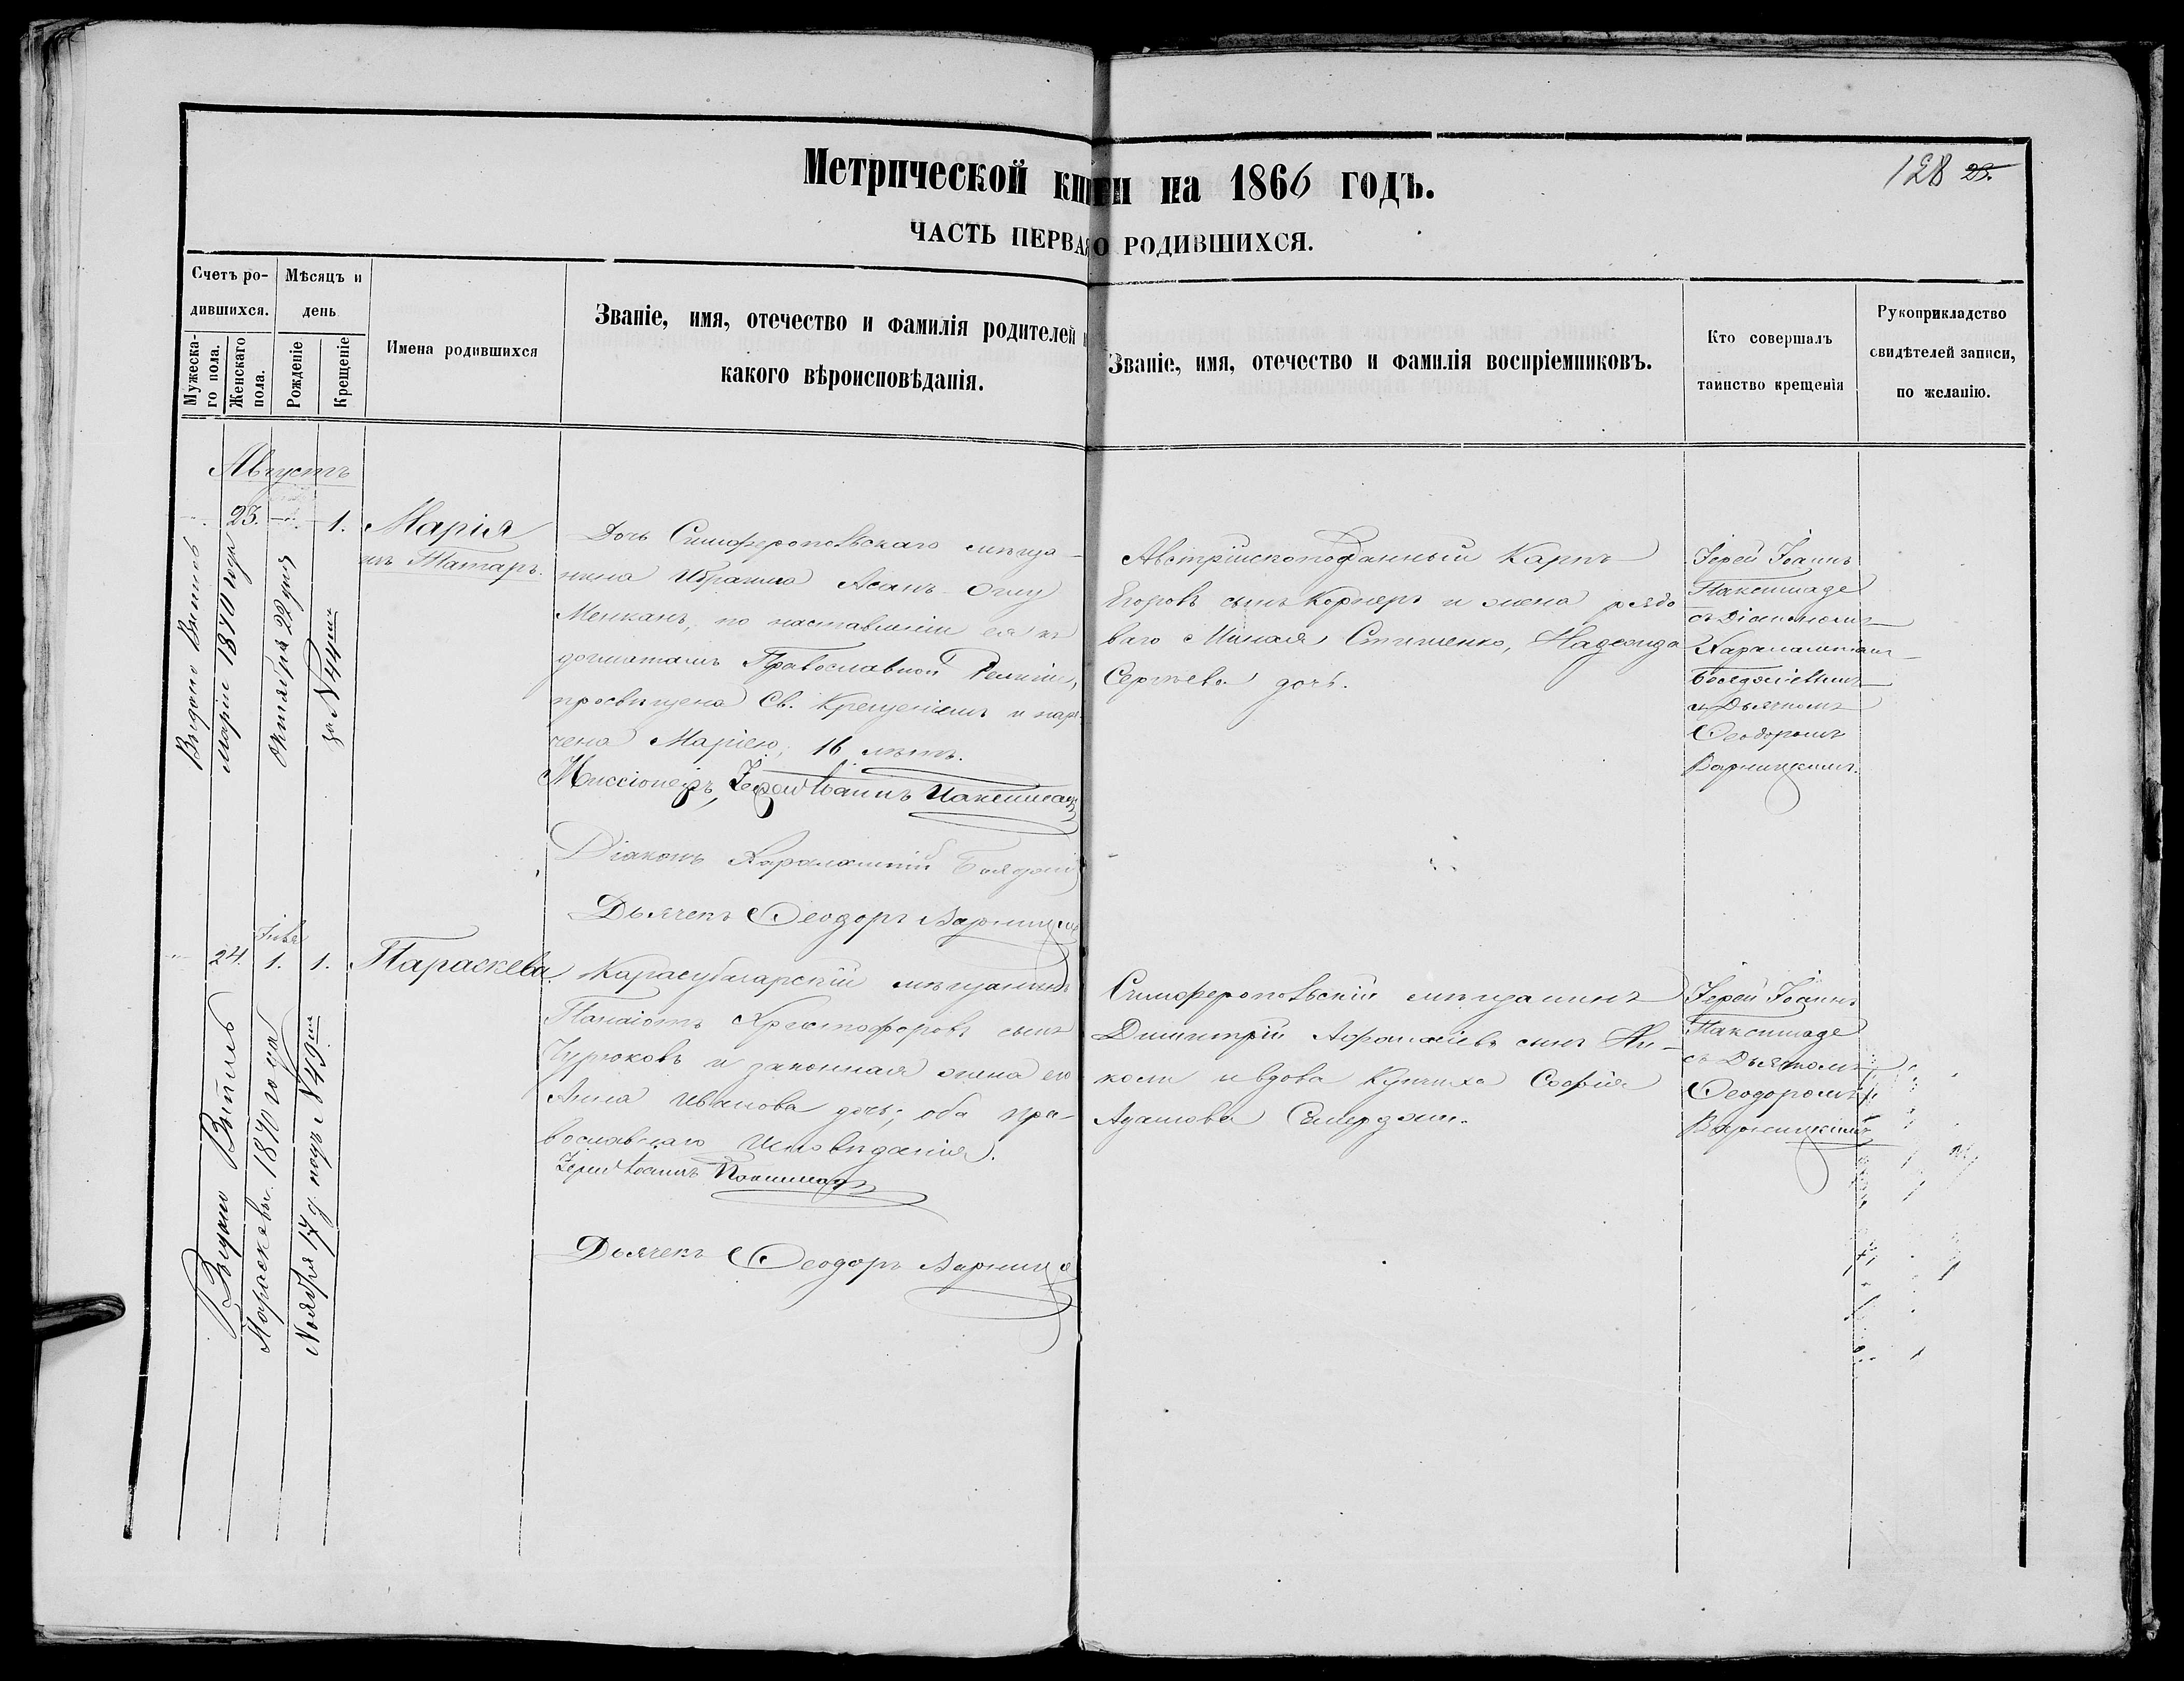 Метрической книги на 1866 годъ.
128 23.
ЧАСТЬ ПЕРВАЯ О РОДИВШИХСЯ.
Счетъ ро-
дившихся.
Мужеска-
го пола.
Женскаго
пола.
Мѣсяцъ и
день
Рожденіе
Крещеніе
Имена родившихся
Званіе, имя, отечество и фамилія родителей и
какого вѣроисповѣданія.
Званіе, имя, отечество и фамилія воспріемниковъ.
Кто совершалъ
таинство крещенія
Рукоприкладство
свидѣтелей записи,
по желанію.
Августъ
23.
1.
Марія
изъ Татаръ.
Дочь Симферопольскаго мѣща-
нина Ибраима Асанъ Оглу
Менканъ, по наставленіи ея къ
догматамъ Православной Религіи,
просвѣщена Св. Крещеніемъ и наре-
чена Маріею, 16 лѣтъ.
Миссіонеръ, Іерей Іоаннъ Паксимаде
Діаконъ Харалампій
Дьячекъ Ѳеодоръ Варницкій
Австрійскоподданный Карпъ
Егоровъ сынъ Корнеръ и жена рядо
ваго Миная Стишенко, Надежда
Сергѣева дочь.
Іерей Іоаннъ
Паксимаде
съ Діакономъ
Харалампіемъ
и Дьячкомъ
Ѳеодоромъ
Варницкимъ.
Выдано
Маріи 1870 года
Октября 22 дня
за № 44
24.
1.
1.
Параскева.
Карасубазарскій мѣщанинъ
Панаіотъ Христофоровъ сынъ
Чурюковъ и законная жена его
Анна Иванова дочь; оба пра-
вославнаго исповѣданія.
Іерей Іоаннъ Паксимаде
Дьячекъ Ѳеодоръ Варницкій
Симферопольскій мѣщанинъ
Димитрій Афанасіевъ сынъ Ни-
коли и вдова Купчиха Софія
Адамова
Іерей Іоаннъ
Паксимаде
съ Дьячкомъ
Ѳеодоромъ
Варницкимъ
Выдано
Параскевы 1870 года
Ноября 17 д. подъ № 49